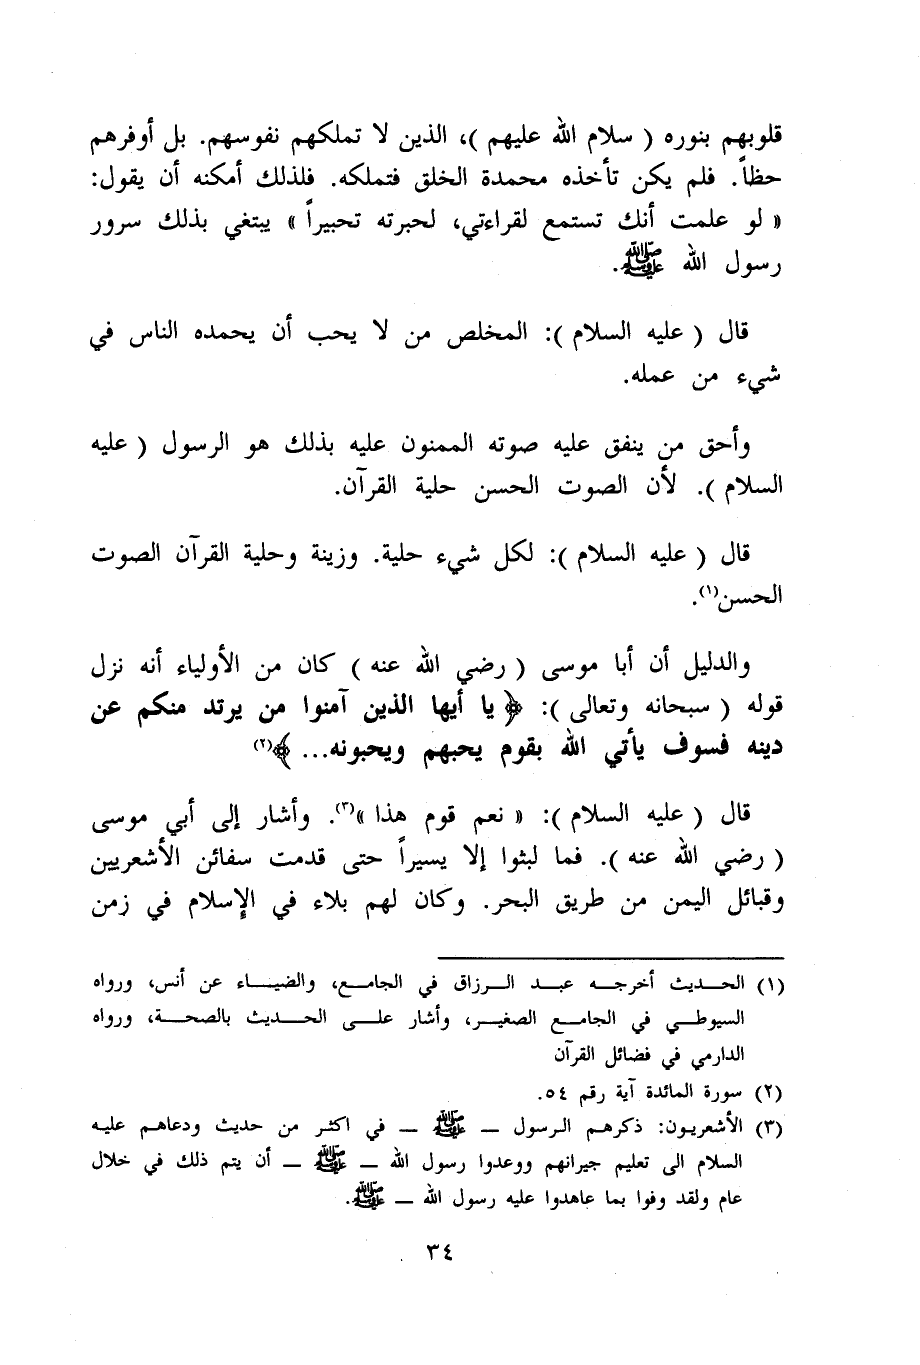 قلوبهم بنوره ( سلام الله عليهم )، الذين لا تملكهم نفوسهم. بل أوفرهم
حظاً. فلم يكن تأخذه محمدة الخلق فتملكه. فلذلك أمكنه أن يقول:
« لو علمت أنك تستمع لقراءتي، لحبرته تحبيراً » يبتغي بذلك سرور
رسول الله ﷺ.
قال ( عليه السلام ): المخلص من لا يحب أن يحمده الناس في
شيء من عمله.
وأحق من ينفق عليه صوته الممنون عليه بذلك هو الرسول ( عليه
السلام ). لأن الصوت الحسن حلية القرآن.
قال ( عليه السلام ): لكل شيء حلية. وزينة وحلية القرآن الصوت
الحسن(١).
والدليل أن أبا موسى ( رضي الله عنه ) كان من الأولياء أنه نزل
قوله ( سبحانه وتعالى ): ﴿ يا أيها الذين آمنوا من يرتد منكم عن
دينه فسوف يأتي الله بقوم يحبهم ويحبونه... ﴾(٢)
قال ( عليه السلام ): « نعم قوم هذا »(٣). وأشار إلى أبي موسى
( رضي الله عنه ). فما لبثوا إلا يسيراً حتى قدمت سفائن الأشعريين
وقبائل اليمن من طريق البحر. وكان لهم بلاء في الإسلام في زمن
(١) الحديث أخرجه عبد الرزاق في الجامع، والضياء عن أنس، ورواه
السيوطي في الجامع الصغير، وأشار على الحديث بالصحة، ورواه
الدارمي في فضائل القرآن
(٢) سورة المائدة آية رقم ٥٤.
(٣) الأشعريون: ذكرهم الرسول ــ ﷺ ــ في اكثر من حديث ودعاهم عليه
السلام الى تعليم جيرانهم ووعدوا رسول الله ــ ﷺ ــ أن يتم ذلك في خلال
عام ولقد وفوا بما عاهدوا عليه رسول الله ــ ﷺ.
٣٤